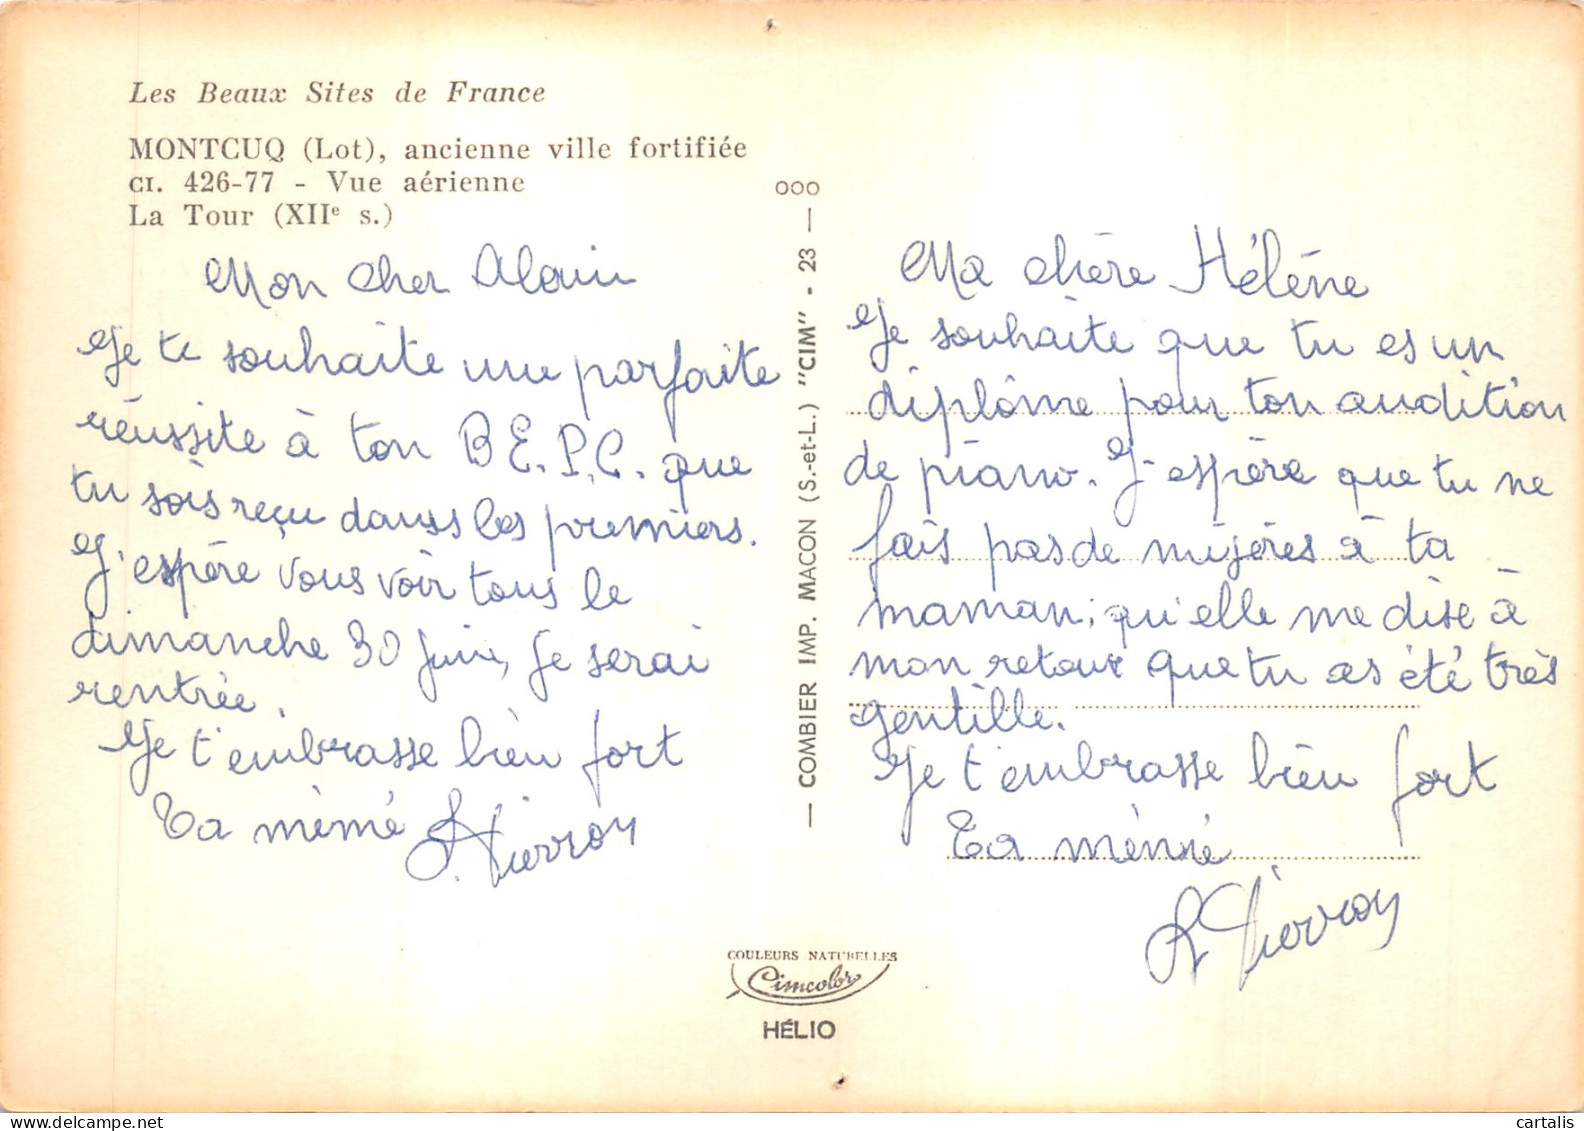 Les Beaux Sites de France
MONTCUQ (Lot), ancienne ville fortifiée
CI. 426-77 - Vue aérienne
La Tour (XIIe s.)
Mon cher Alain
Je te souhaite une parfaite
réussite à ton B.E.P.C. que
tu sois reçu dans les premiers.
J'espère vous voir tous le
dimanche 30 juin, je serai
rentrée.
Je t'embrasse bien fort
Ta mémé
Pierron
COMBIER IMP. MACON (S.-et-L.) "CIM" - 23 —
OOO
Ma chère Hélène
Je souhaite que tu es un
diplôme pour ton audition
de piano. J'espère que tu ne
fais pas de misères à ta
maman, qu'elle me dise à
mon retour que tu as été très
gentille.
Je t'embrasse bien fort
Ta mémé
Pierron
COULEURS NATURELLES
Cimcolor
HÉLIO
cartalis